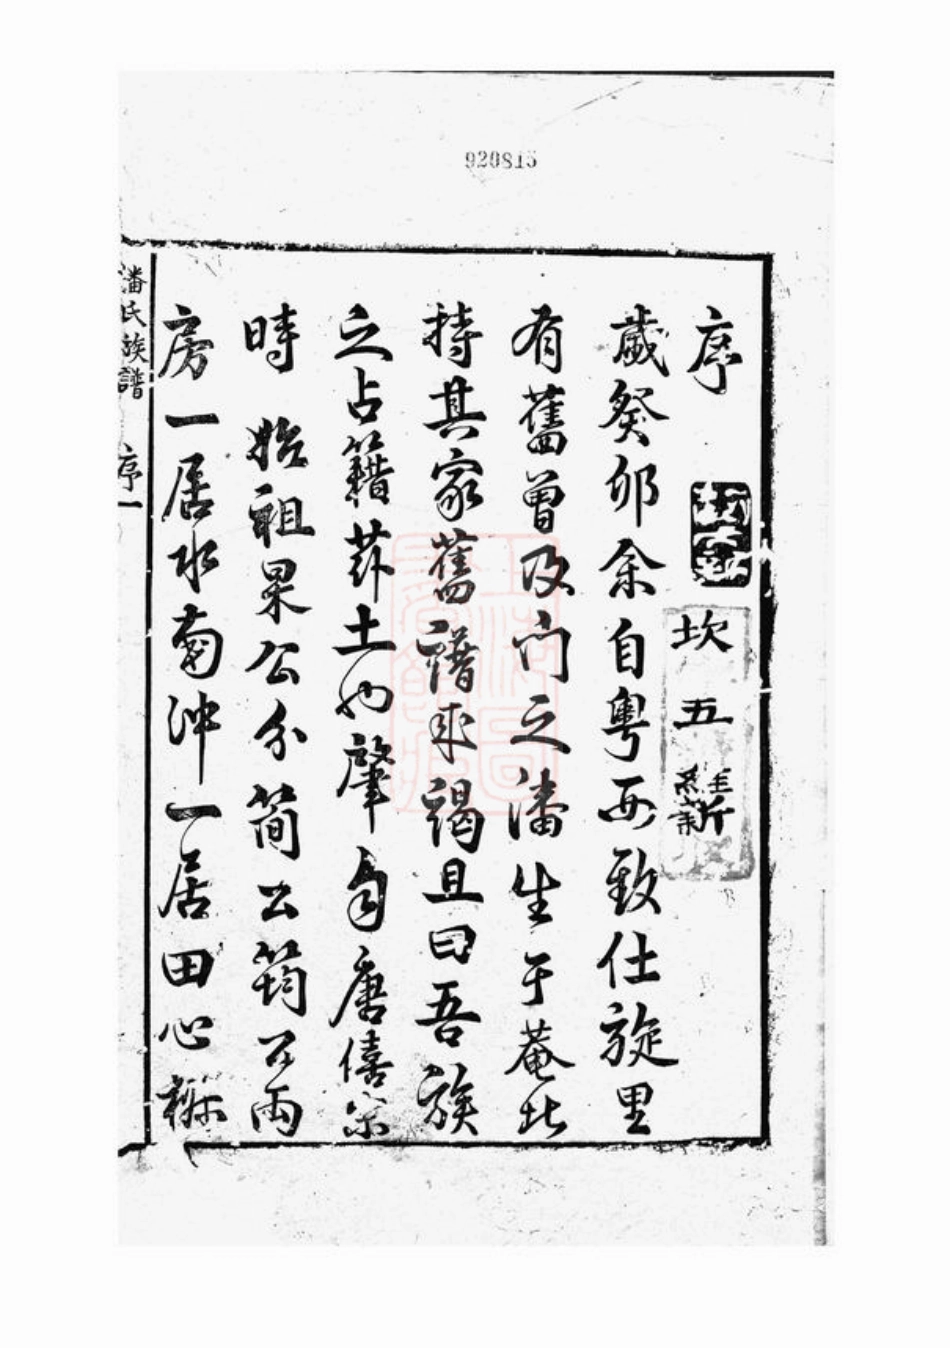 920815
序 坎五
歲癸卯余自粤西致仕旋里
有舊曾及门之潘生于菴
持其家舊譜來謁且曰吾族
之占籍茲土也肇自唐僖宗
時 始祖杲公分简公筠公兩
房一居水南沖一居田心
潘氏族譜 序一